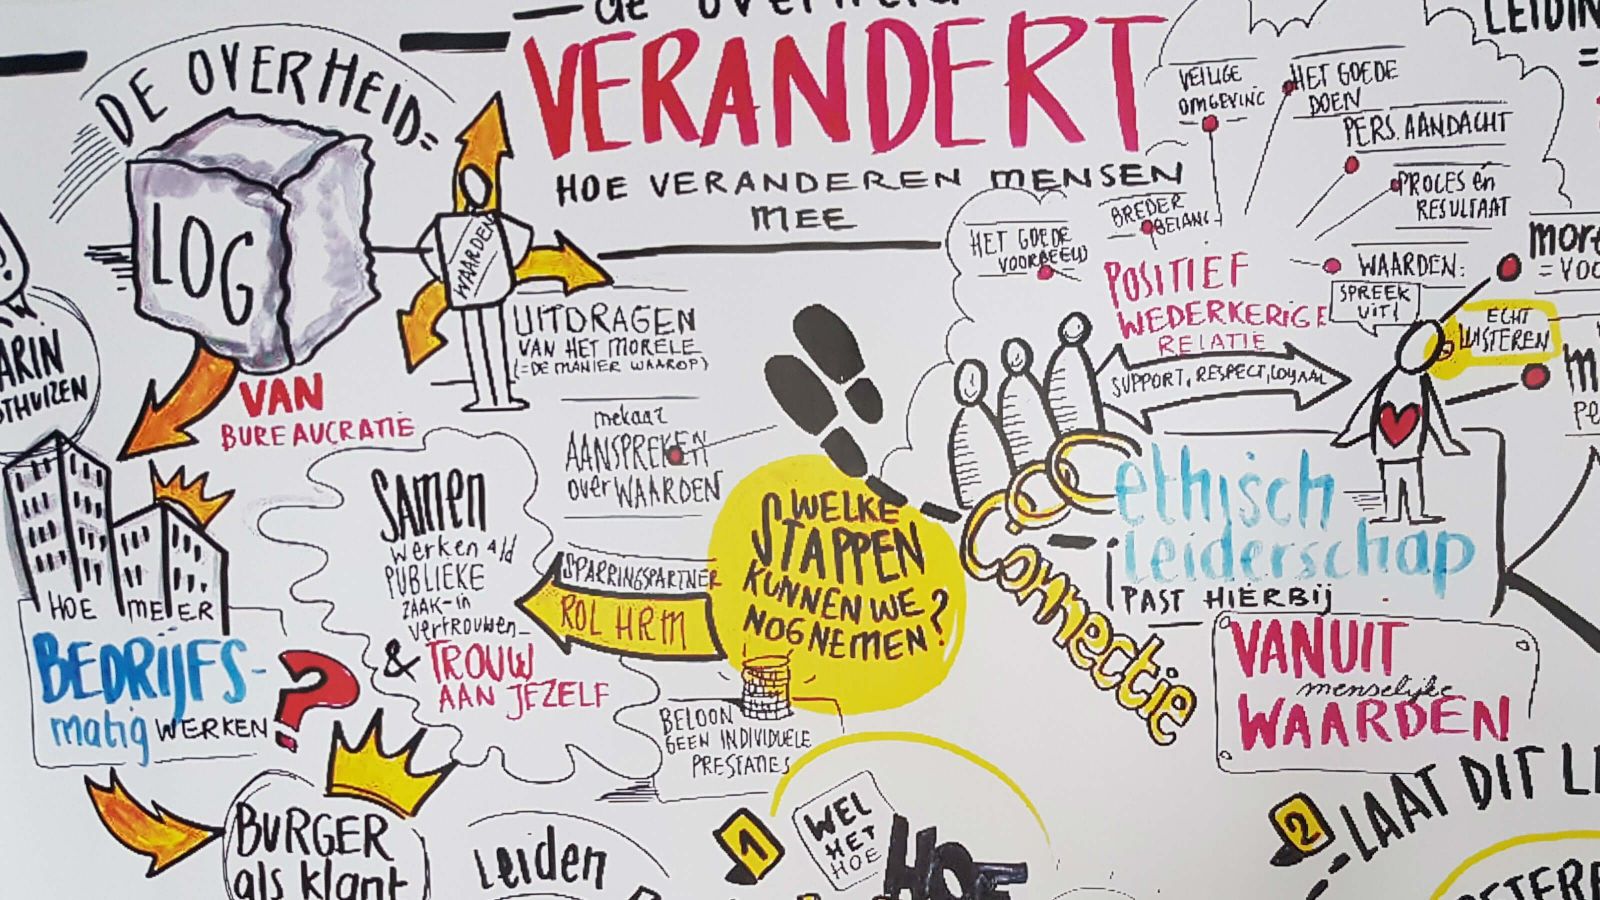 de overheid
VERANDERT
HOE VERANDEREN MENSEN
MEE
DE OVERHEID=
LOG
WAARDEN
UITDRAGEN
VAN HET MORELE
(=DE MANIER WAAROP)
VAN
BUREAUCRATIE
mekaar
AANSPREKEN
over WAARDEN
HOE MEER
BEDRIJFS-
matig WERKEN
?
BURGER
als klant
SAMEN
werken a/d
PUBLIEKE
ZAAK-in
vertrouwen-
& TROUW
AAN JEZELF
SPARRINGSPARTNER
ROL HRM
WELKE
STAPPEN
KUNNEN WE
NOG NEMEN?
BELOON
GEEN INDIVIDUELE
PRESTATIES
Leiden
1
WEL
HET
HOE
VEILIGE
OMGEVING
HET GOEDE
DOEN
PERS. AANDACHT
PROCES én
RESULTAAT
BREDER
BELANG
HET GOEDE
VOORBEELD
WAARDEN:
SPREEK
UIT!
POSITIEF
WEDERKERIGE
RELATIE
SUPPORT, RESPECT, LOYAAL
ECHT
LUISTEREN
Connectie
ethisch
leiderschap
PAST HIERBIJ
VANUIT
menselijke
WAARDEN
2
LAAT DIT